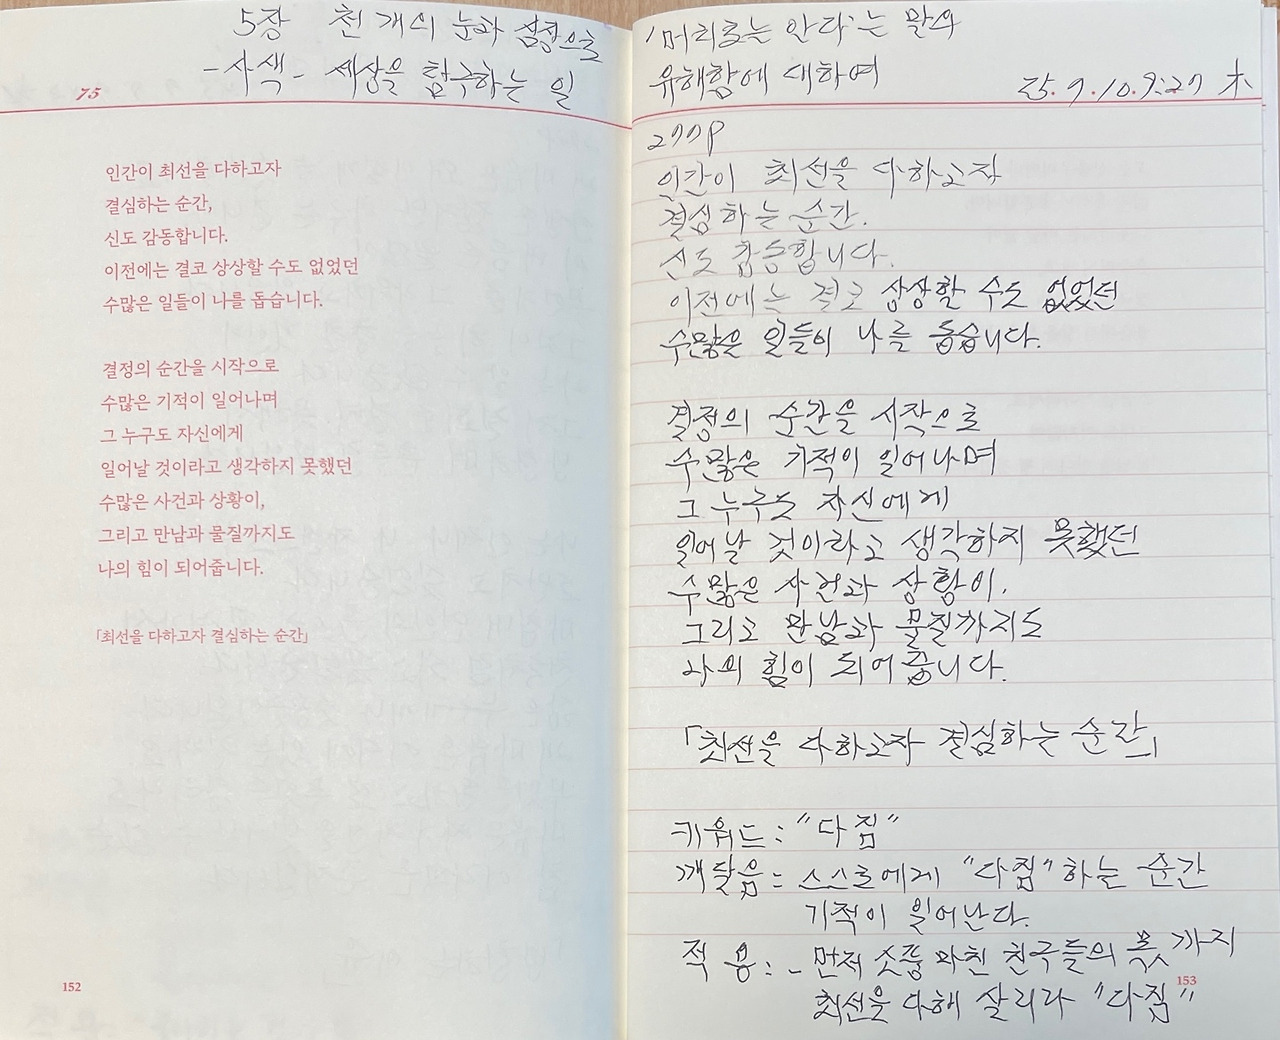 5장 천 개의 눈과 심장으로
-사색- 세상을 탐구하는 일
75
인간이 최선을 다하고자
결심하는 순간,
신도 감동합니다.
이전에는 결코 상상할 수도 없었던
수많은 일들이 나를 돕습니다.
결정의 순간을 시작으로
수많은 기적이 일어나며
그 누구도 자신에게
일어날 것이라고 생각하지 못했던
수많은 사건과 상황이,
그리고 만남과 물질까지도
나의 힘이 되어줍니다.
「최선을 다하고자 결심하는 순간」
152
'머리로는 안다'는 말의
유해함에 대하여
25.7.10.9:27 木
277P
인간이 최선을 다하고자
결심하는 순간.
신도 감동합니다.
이전에는 결코 상상할 수도 없었던
수많은 일들이 나를 돕습니다.
결정의 순간을 시작으로
수많은 기적이 일어나며
그 누구도 자신에게
일어날 것이라고 생각하지 못했던
수많은 사건과 상황이.
그리고 만남과 물질까지도
나의 힘이 되어줍니다.
「최선을 다하고자 결심하는 순간」
키워드: "다짐"
깨달음: 스스로에게 "다짐"하는 순간
기적이 일어난다.
적용: - 먼저 소풍 마친 친구들의 몫까지
최선을 다해 살리라 "다짐"
153